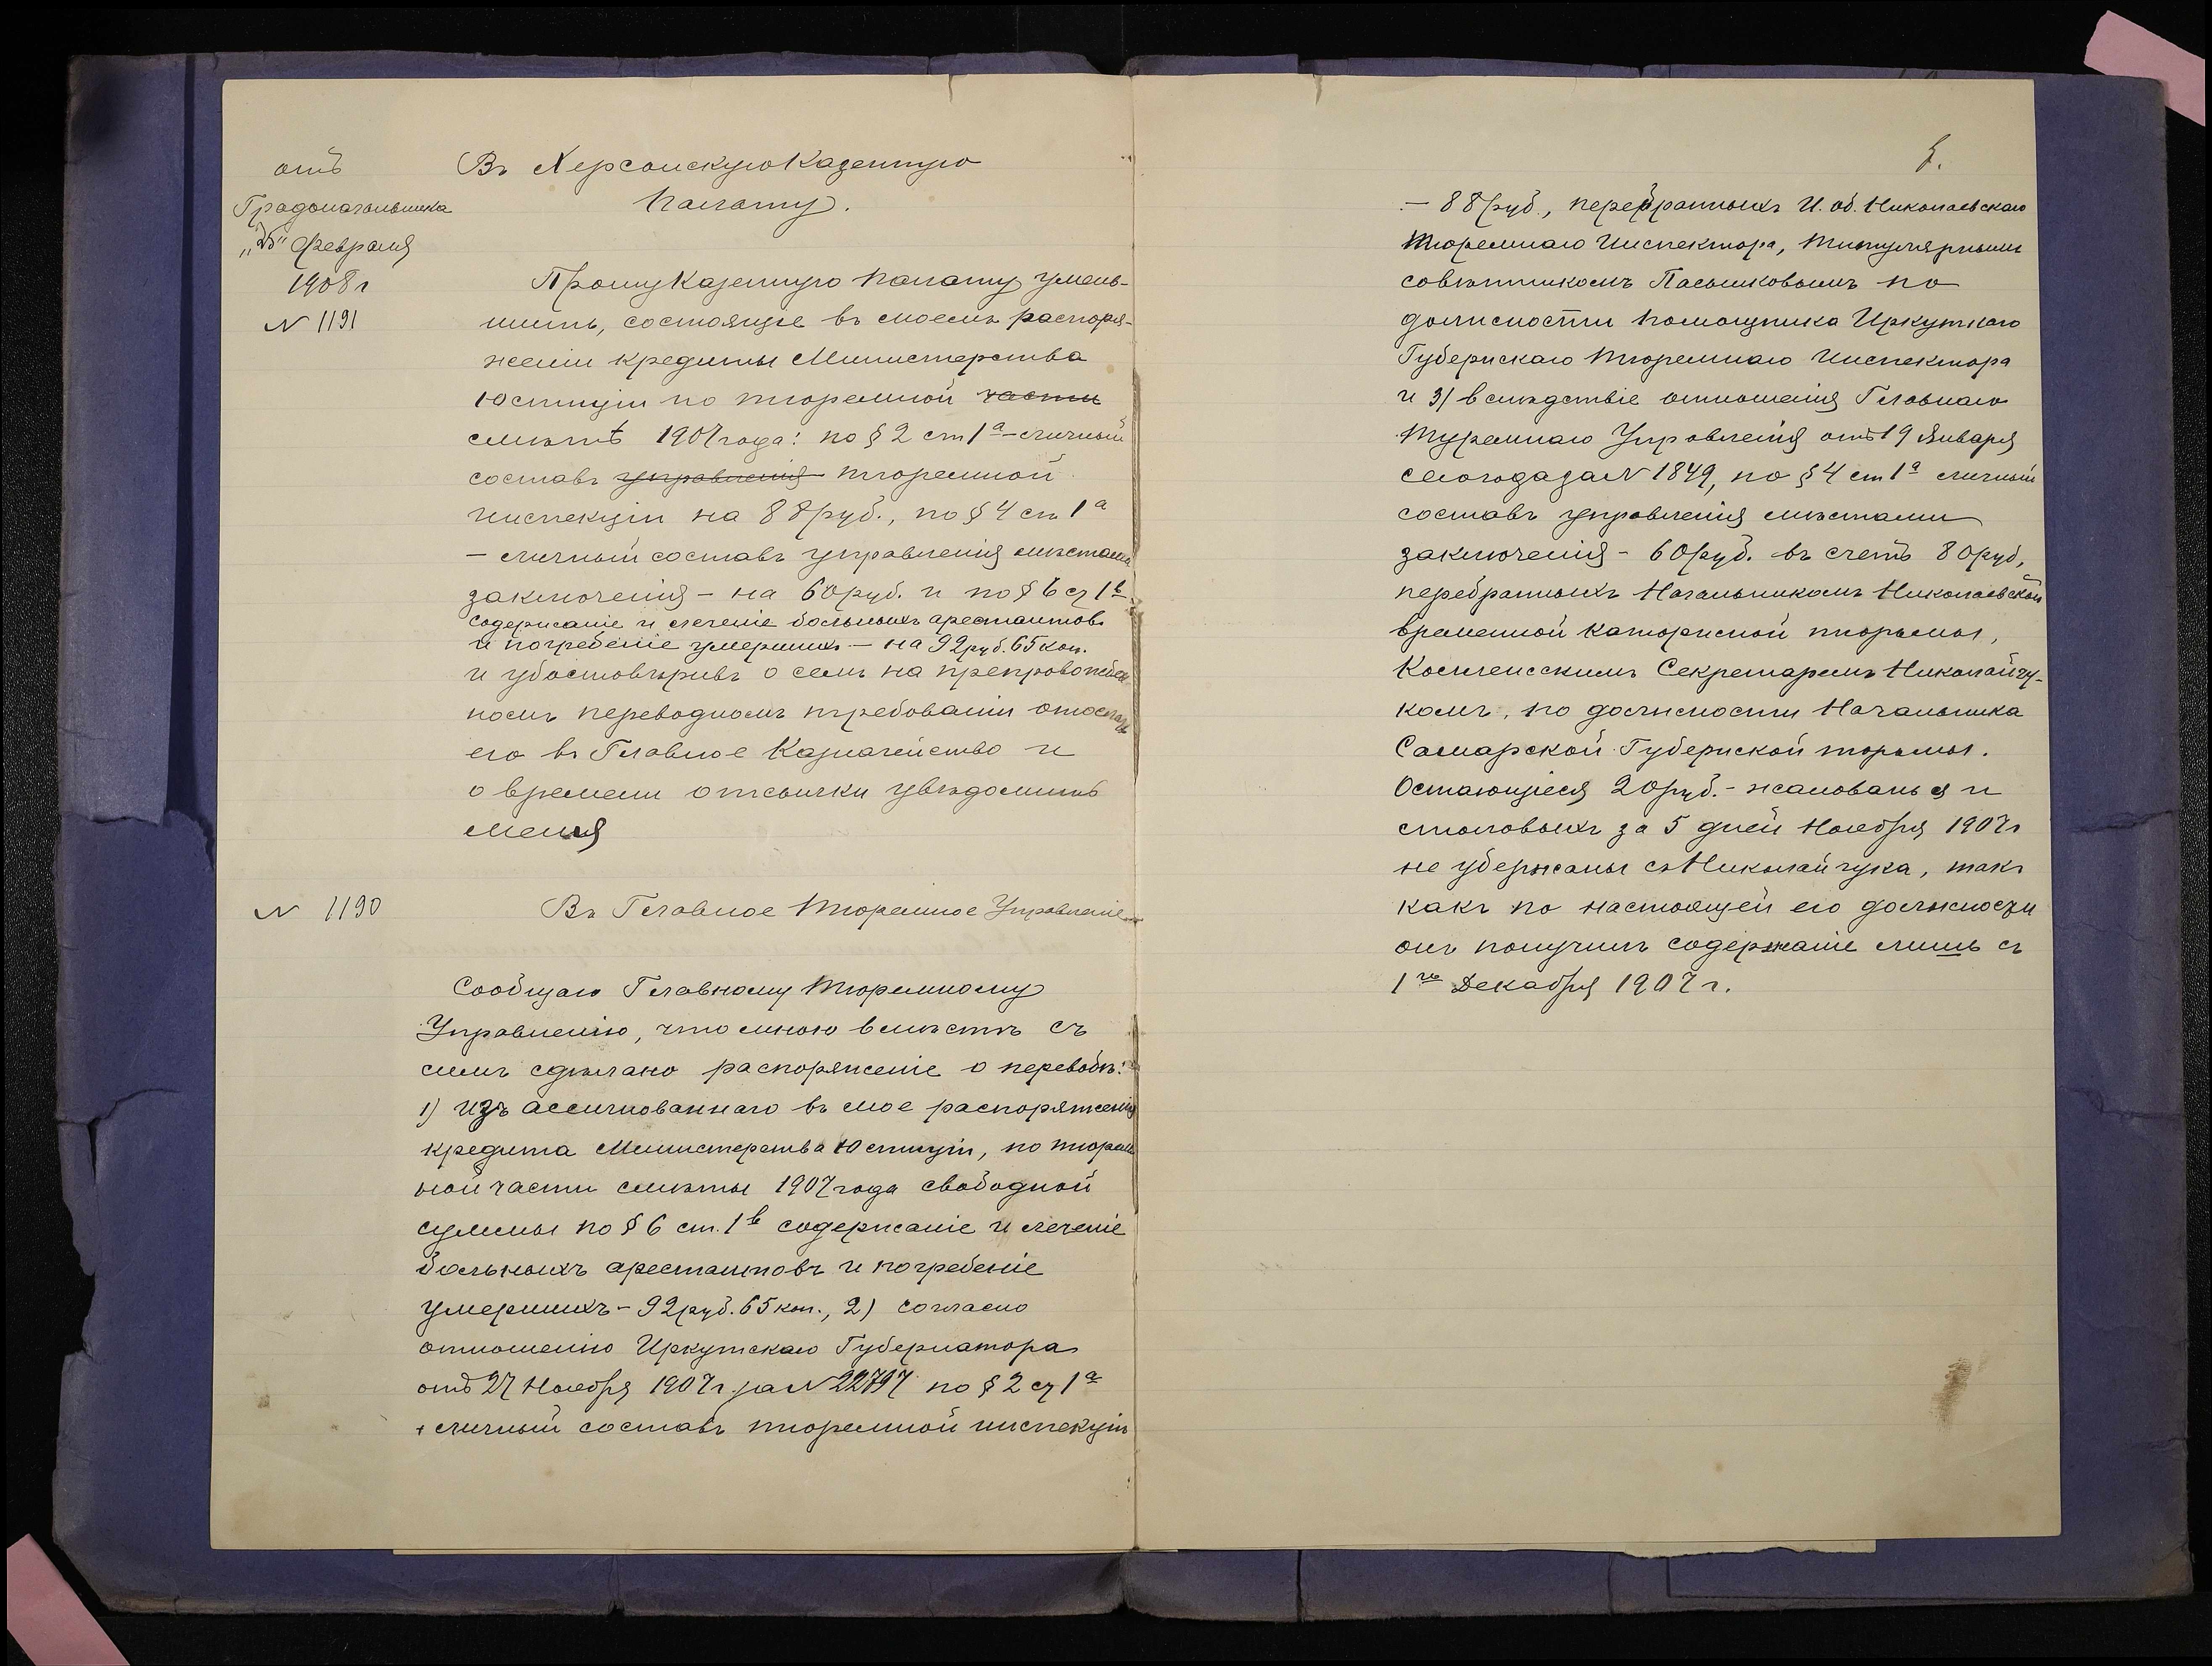 отъ
Градоначальника
"25" февраля
1908 г
N 1191
Въ Херсонскую Казенную
Палату.
Прошу Казенную Палату умень-
шить, состоящіе въ моемъ распоря-
женіи кредиты Министерства
Юстиціи по тюремной части
смѣтѣ 1907 года: по § 2 ст 1а - личный
составъ управленія тюремной
инспекціи на 88 руб., по § 4 ст 1а
- личный составъ управленія мѣстами
заключенія - на 60 руб. и по § 6 ст 1в
содержаніе и леченіе больныхъ арестантовъ
и погребеніе умершихъ - на 92 руб. 65 коп.
и удостовѣривъ о семъ на препровожден-
номъ переводномъ требованіи отослать
его въ Главное Казначейство и
о времени отсылки увѣдомить
меня
N 1190
Въ Главное Тюремное Управленіе
Сообщаю Главному Тюремному
Управленію, что мною вмѣстѣ съ
симъ сдѣлано распоряженіе о переводѣ:
1) изъ ассигнованнаго въ мое распоряженіе
кредита Министерства Юстиціи, по тюрем
ной части смѣты 1907 года свободной
суммы по § 6 ст. 1в содержаніе и леченіе
больныхъ арестантовъ и погребеніе
умершихъ - 92 руб. 65 коп., 2) согласно
отношенію Иркутскаго Губернатора
отъ 27 Ноября 1907 г. за N 22797 по § 2 ст 1а
+ личный составъ тюремной инспекціи
- 88 руб., перебранныхъ И. об. Николаевскаго
Тюремнаго Инспектора, Титулярнымъ
совѣтникомъ Пасынковымъ по
должности помощника Иркутскаго
Губернскаго Тюремнаго Инспектора
и 3) вслѣдствіе отношенія Главнаго
Туремнаго Управленія отъ 19 Января
сего года за N 1849, по § 4 ст 1а личный
составъ управленія мѣстами
заключенія - 60 руб. въ счетъ 80 руб,
перебранныхъ Начальникомъ Николаевской
временной каторжной тюрьмы,
Коллежскимъ Секретаремъ Николайчу-
комъ, по должности Начальника
Самарской Губернской тюрьмы.
Остающіеся 20 руб. - жалованья и
столовыхъ за 5 дней Ноября 1907 г
не удержаны съ Николайчука, такъ
какъ по настоящей его должности
онъ получилъ содержаніе лишь съ
1го Декабря 1907 г.